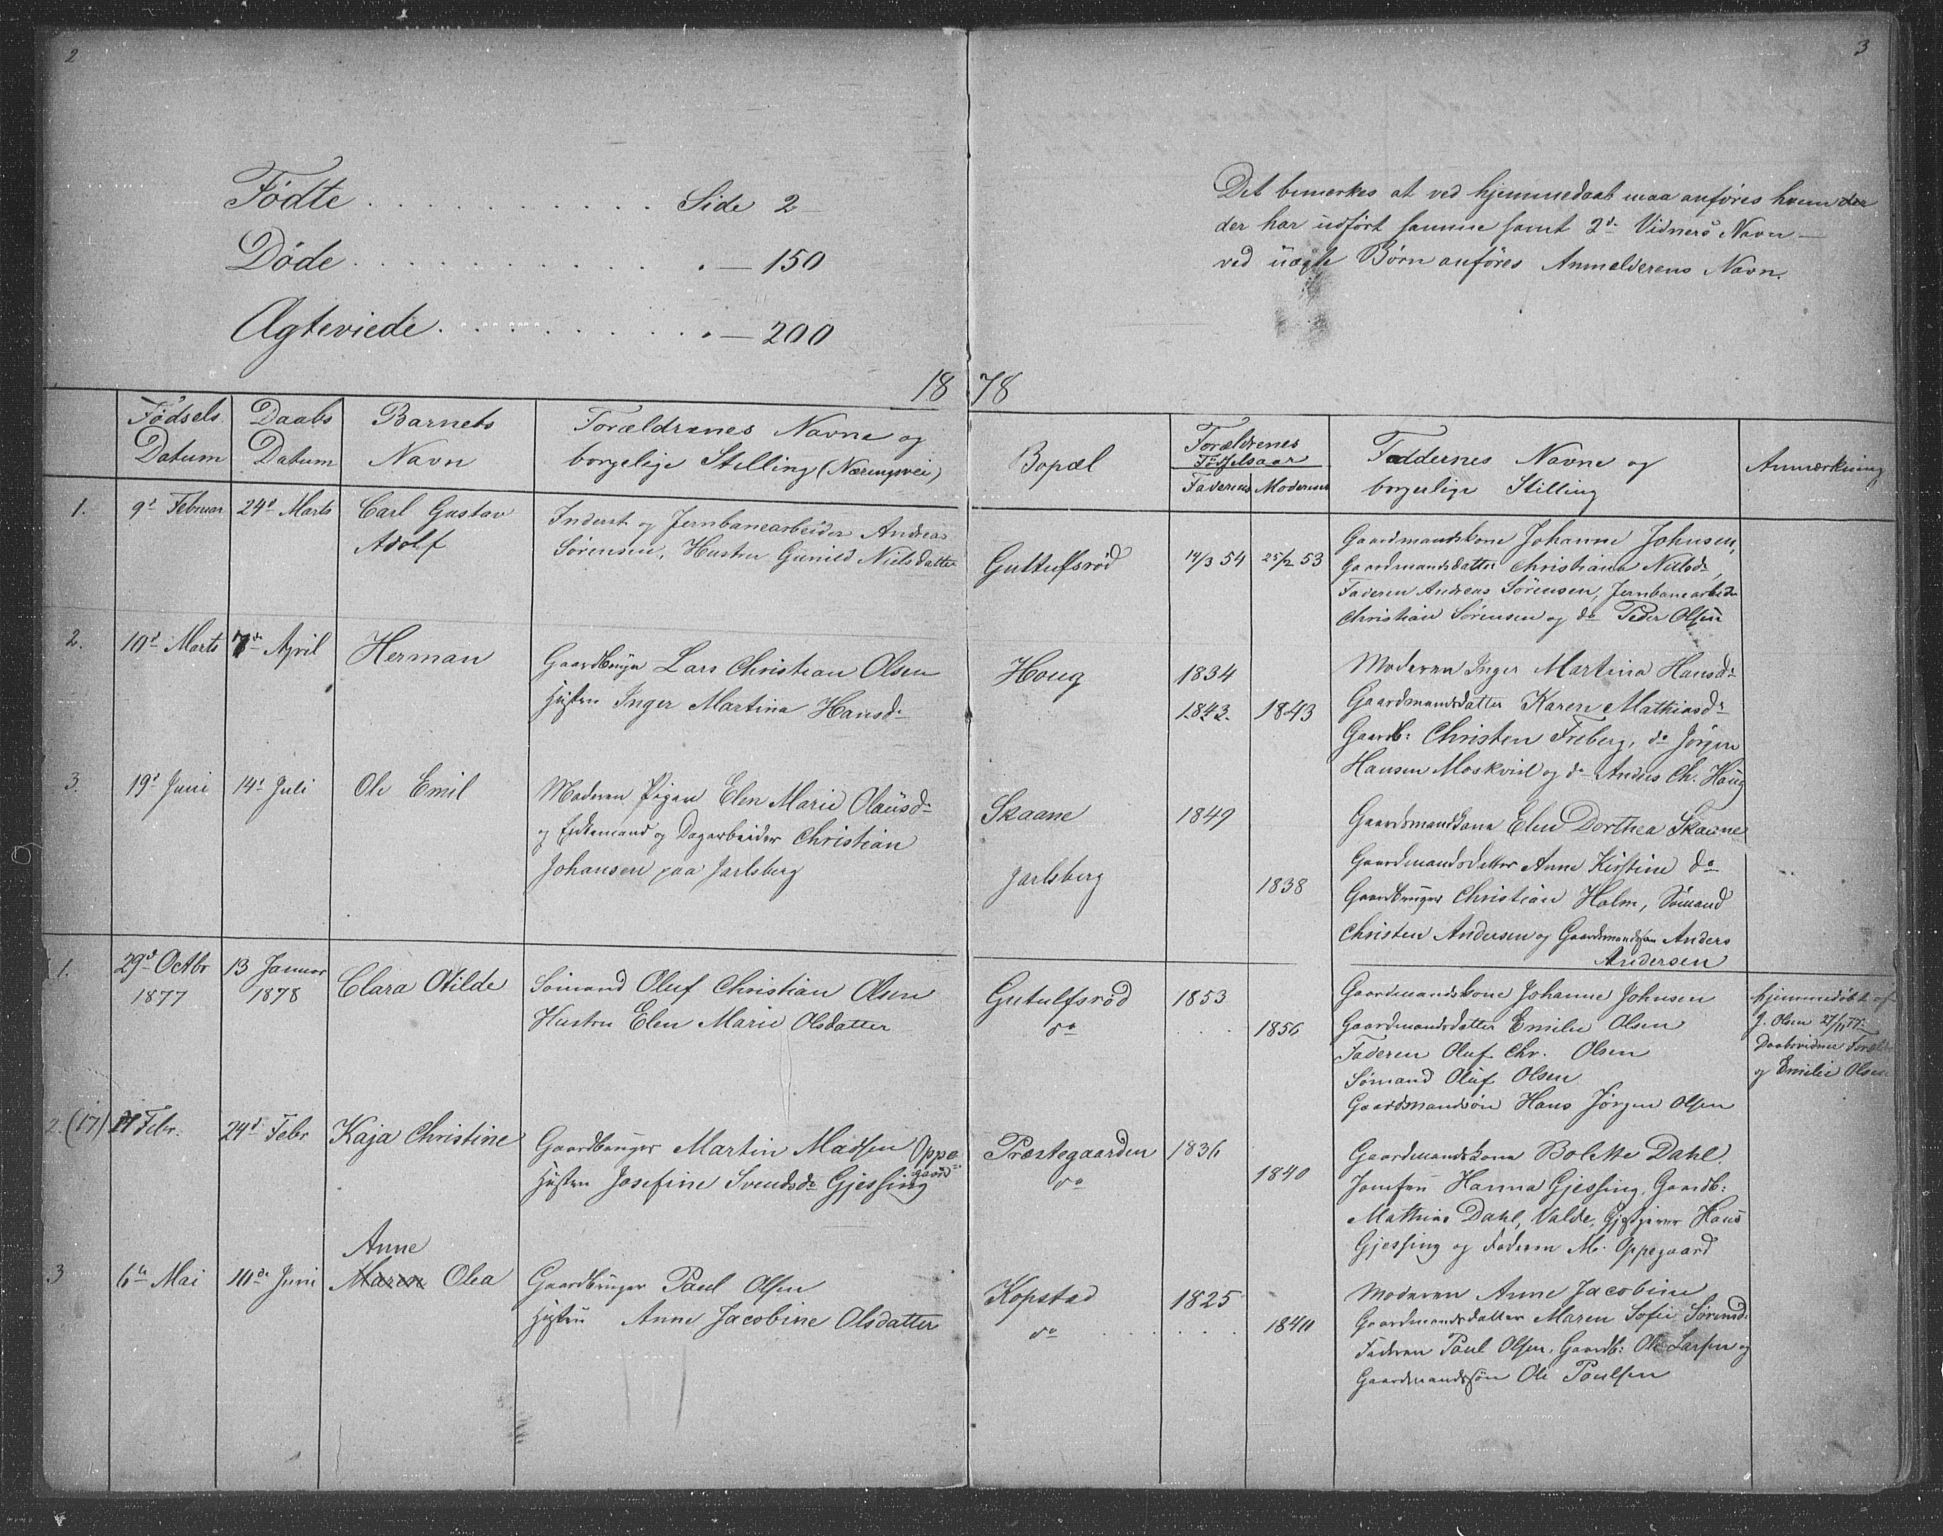 2
Födte . . . . . . . . . . . . Side 2
Döde . . . . . . . . . . . . — 150
Ægteviede . . . . . . . . . — 200
18
Födsels Datum
Daabs Datum
Barnets Navn
Forældrenes Navne og
borgelige Stilling (Næringsvei)
1. 9d Februar 24d Marts Carl Gustav
Adolf
Inderst og Jernbanearbeider Andreas
Sörensen, Hustru Gunild Nielsdatter
2. 10d Marts 7de April Herman
Gaardbruger Lars Christian Olsen
Hustru Inger Martina Hansd.
3. 19d Juni 14d Juli Ole Emil
Moderen Pigen Elen Marie Olausd.
og Enkemand og Dagarbeider Christian
Johansen paa Jarlsberg
1. 29d Octbr 1877 13 Januar 1878 Clara Otilde
Sömand Oluf Christian Olsen
Hustru Elen Marie Olsdatter
2. (17) Febr. 24d Febr Kaja Christine
Gaardbruger Martin Madsen Oppegaard
Hustru Josefine Svendsd. Gjessing
3 6te Mai 10de Juni Anne
Maren Olea
Gaardbruger Paul Olsen
Hustru Anne Jacobine Olsdatter
3
Det bemærkes at ved hjemmedaab maa anföres hvem der
der har udfört samme samt 2de Vidners Navn —
ved uægte Börn anföres Anmelderens Navn.
78
Bopæl
Forældrenes
Födselsaar
Faderens Moderens
Faddernes Navne og
borgerlige Stilling
Anmærkning
Guttulfsröd 14/3 54 25/12 53
Gaardmandskone Johanne Johnsen,
Gaardmandsdatter Christiane Nilsd.,
Faderen Andreas Sörensen, Jernbanearbeid.
Christian Sörensen og do Peder Olsen
Houg 1834
1843. 1843
Moderen Inger Martina Hansd.
Gaardmandsdatter Karen Mathiasd.
Gaardb: Christen Freberg, do Jörgen
Hansen Moskvil og do Anders Ch. Haug
Skaane 1849
Jarlsberg 1838
Gaardsmandskone Elen Dorthea Skaane
Gaardmandsdatter Anne Kirstine do
Gaardbruger Christian Holm, Sömand
Christen Andersen og Gaardmandssøn Anders
Andersen
Gutulfsröd 1853
do . . . . 1856
Gaardmandskone Johanne Johnsen
Gaardmandsdatter Emilie Olsen
Faderen Oluf Chr. Olsen
Sömand Oluf Olsen
Gaardmandsön Hans Jörgen Olsen
Hjemmedöbt af
J. Olsen 27/11 77
Daabsvidner Foreld.
og Emilie Olsen
Præstegaarden 1836
do 1840
Gaardmandskone Bolette Dahl.
Jomfru Hanna Gjessing, Gaardb:
Mathias Dahl, Valde, Gjestgiver Hans
Gjessing og Faderen M. Oppegaard
Kopstad 1825
do . . . . . . 1840
Moderen Anne Jacobine
Gaardmandsdatter Maren Sofie Sörensd.
Faderen Paul Olsen, Gaardb: Ole Larsen og
Gaardmandssön Ole Paulsen